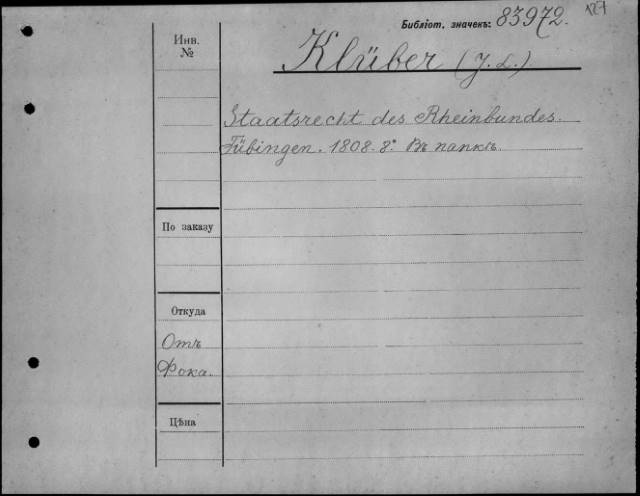 127
Библіот. значекъ: 83972.
Инв.
№
Klüber (J. L.)
Staatsrecht des Rheinbundes.
Tübingen. 1808. 8°. Въ папкѣ.
По заказу
Откуда
Отъ
Фока.
Цѣна